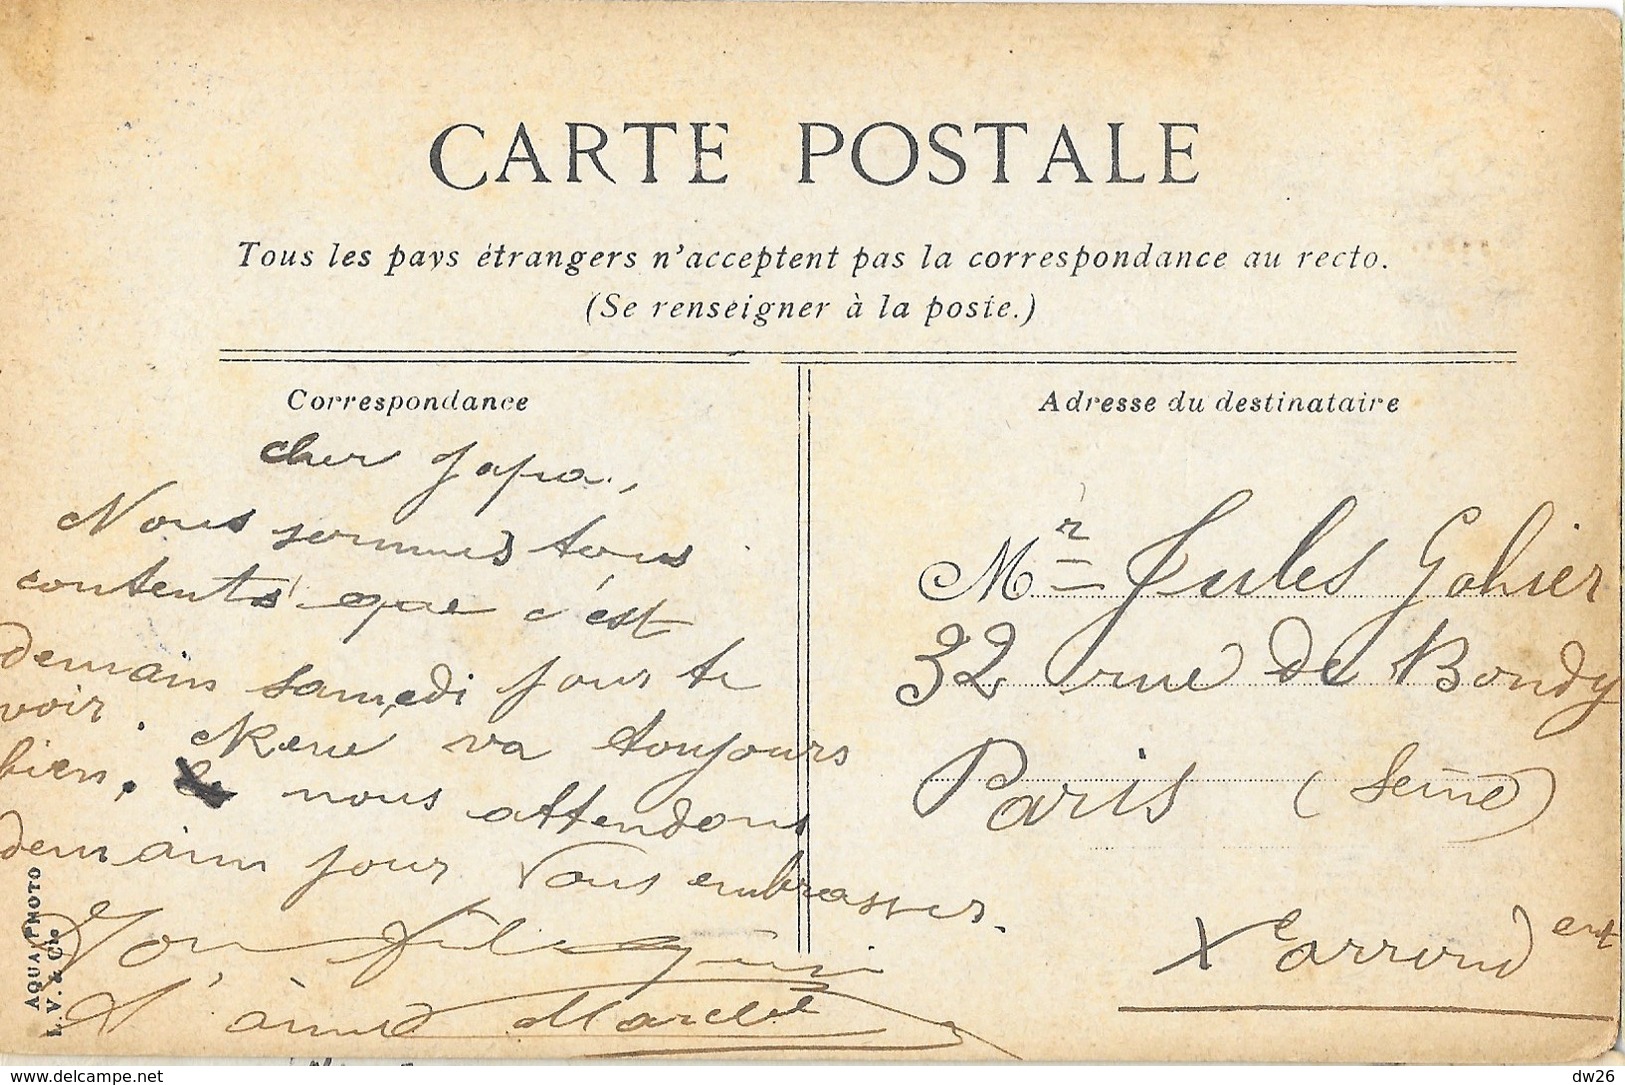 CARTE POSTALE
Tous les pays étrangers n'acceptent pas la correspondance au recto.
(Se renseigner à la poste.)
Correspondance
cher papa,
Nous sommes tous
contents que c'est
demain samedi pour te
voir. René va toujours
bien. nous attendons
demain pour vous embrasser.
Ton fils qui
t'aime Marcel
Adresse du destinataire
Mr Jules Gohier
32 rue de Bondy
Paris (Seine)
Xe arrondent
AQUA PHOTO
L. V. & Cie
https://www.delcampe.net
dw26